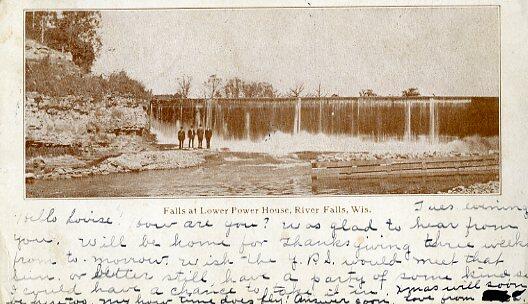 Falls at Lower Power House, River Falls, Wis.
Tues evening
Hello Louise! How are you? Was glad to hear from
you. Will be home for Thanksgiving three weeks
from to-morrow. Wish the Y.P.S. would meet that
or better still have a party of some kind so
I could have a chance to take it in. Xmas will soon
be my how time does fly! Answer soon. Love from